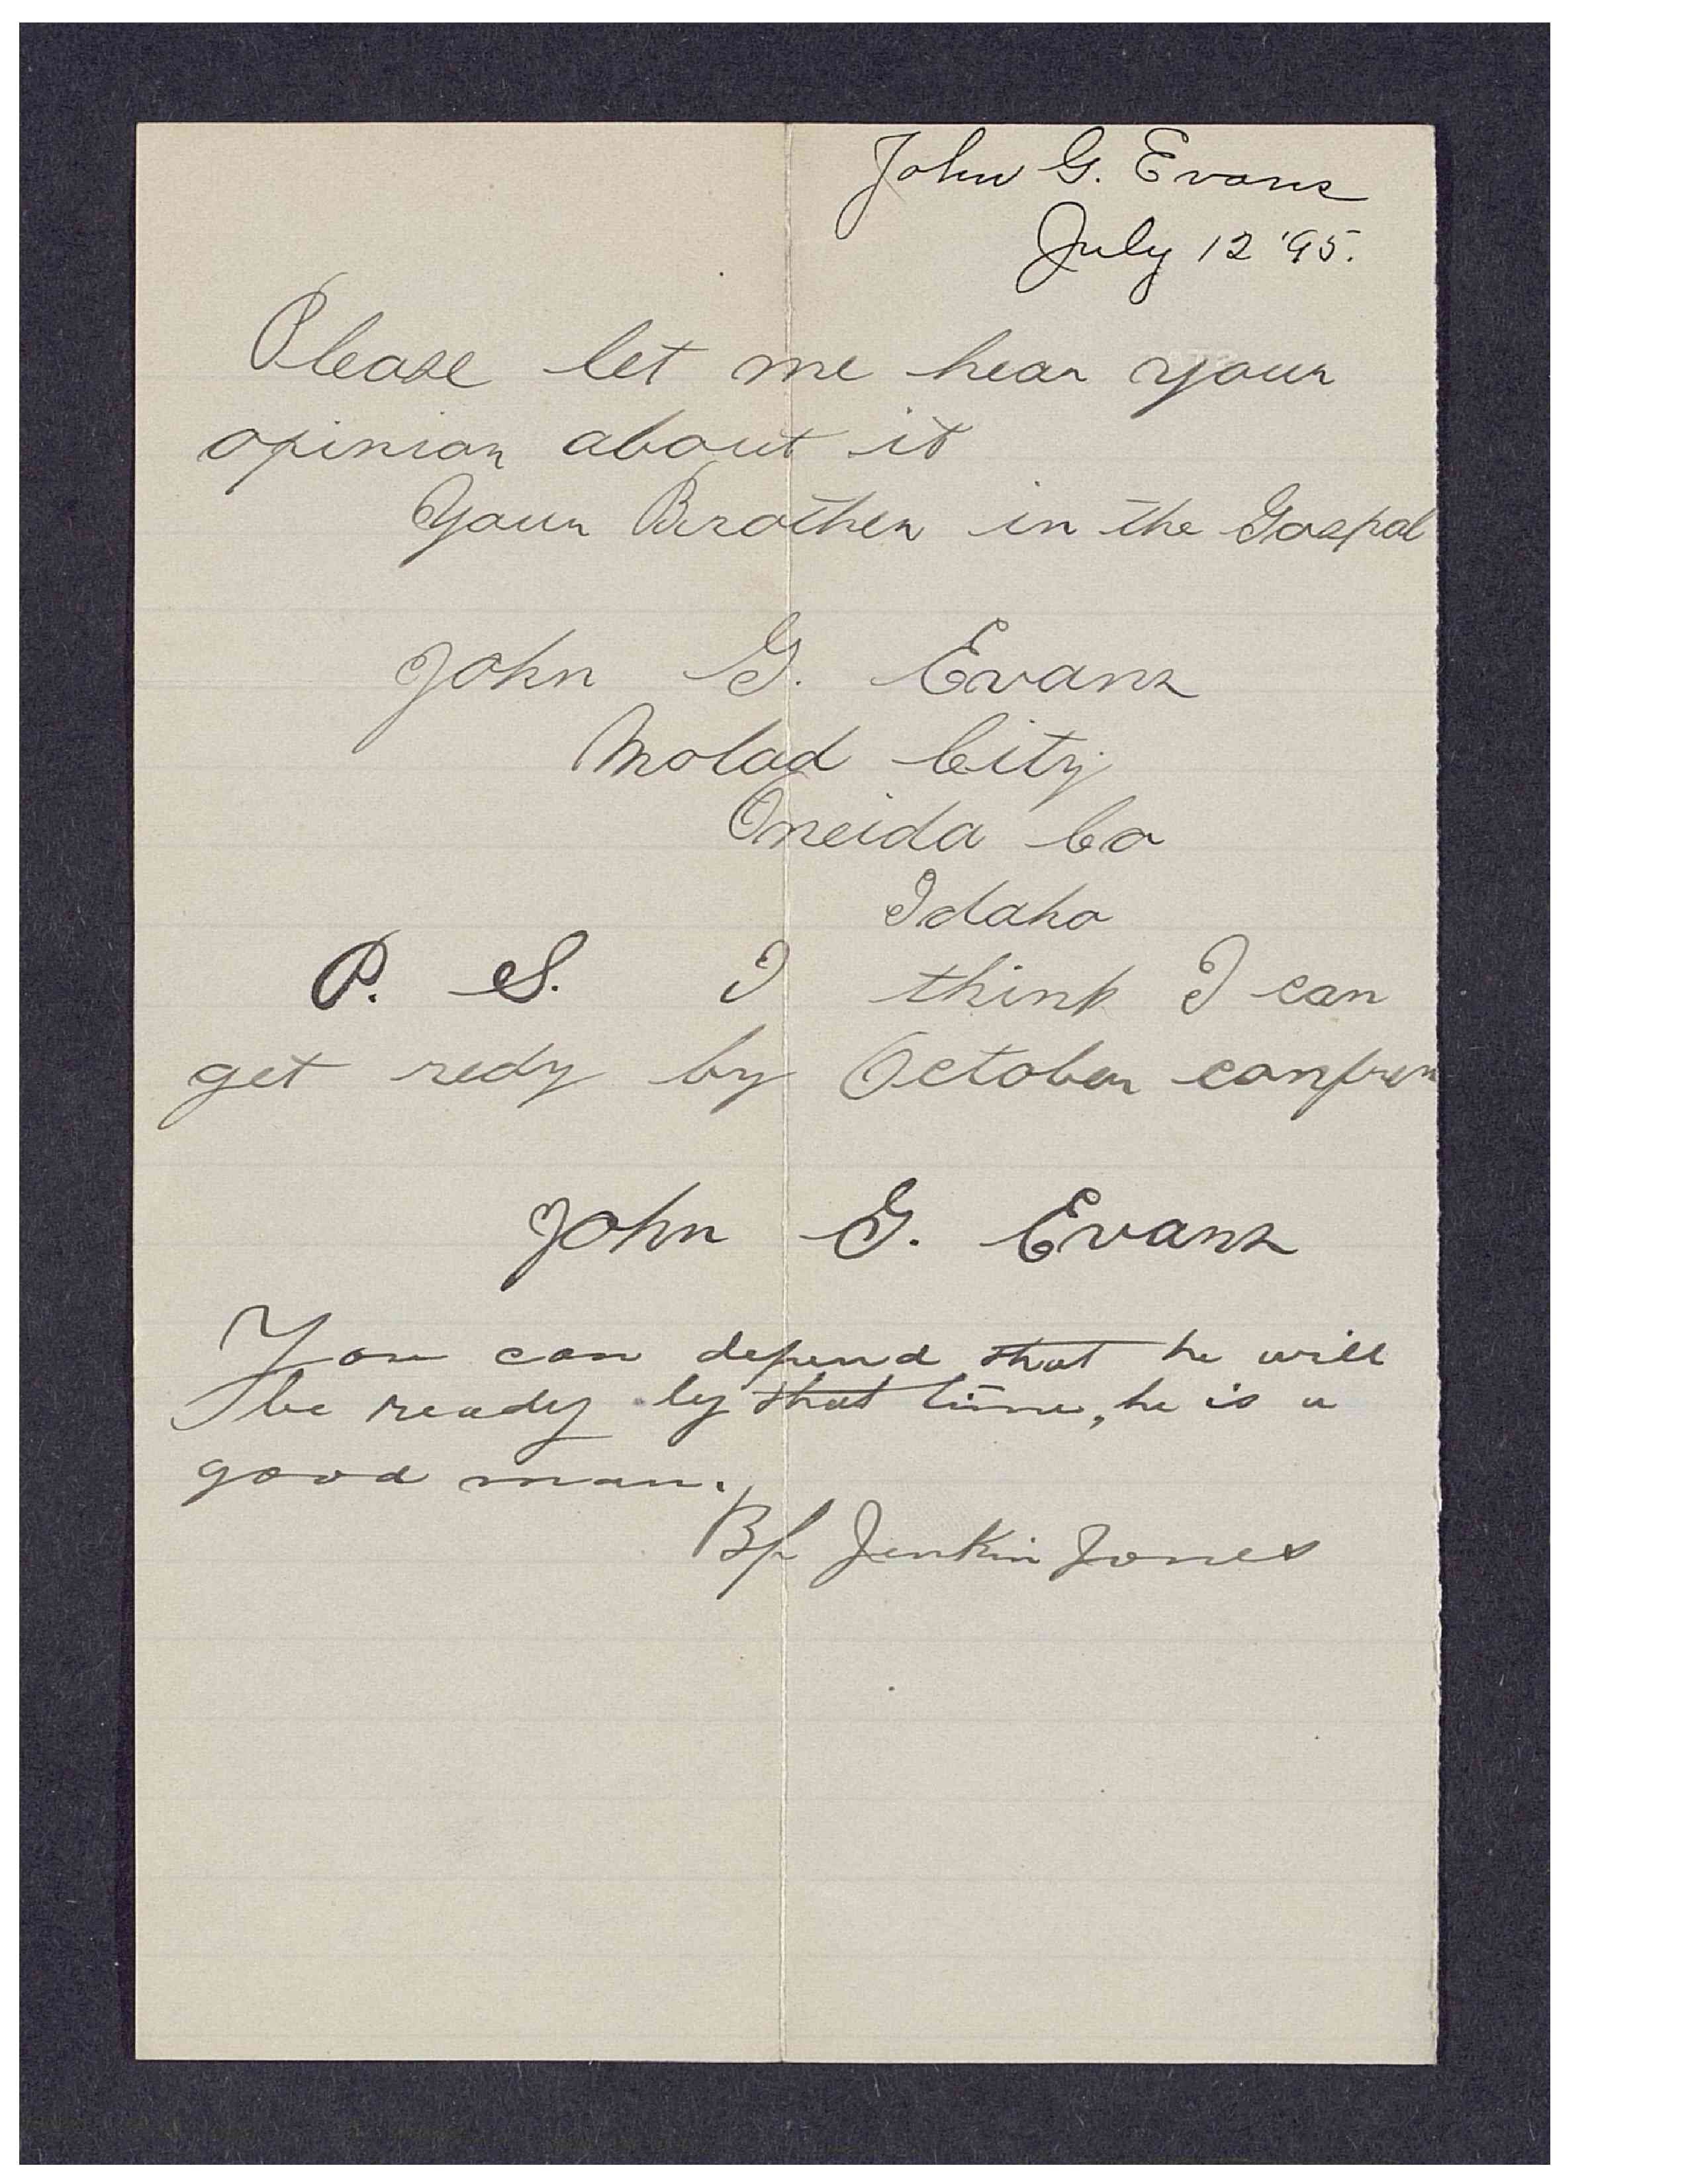 John G. Evans
July 12 '95.
Please let me hear your
opinion about it
Your Brother in the Gospal
John G. Evans
Malad City
Oneida Co
Idaho
P. S. I think I can
get redy by October confren
John G. Evans
You can depend that he will
be ready by that time, he is a
good man.
Bp Jenkin Jones